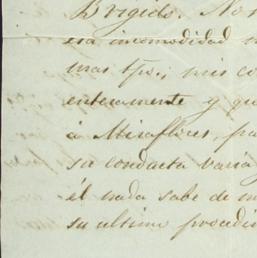 Brigido. No
esa incomodidad
mas tpo., mis co
enteramente y qu
á Miraflores, pa
su conducta varia
él nada sabe de m
su ultimo procedi